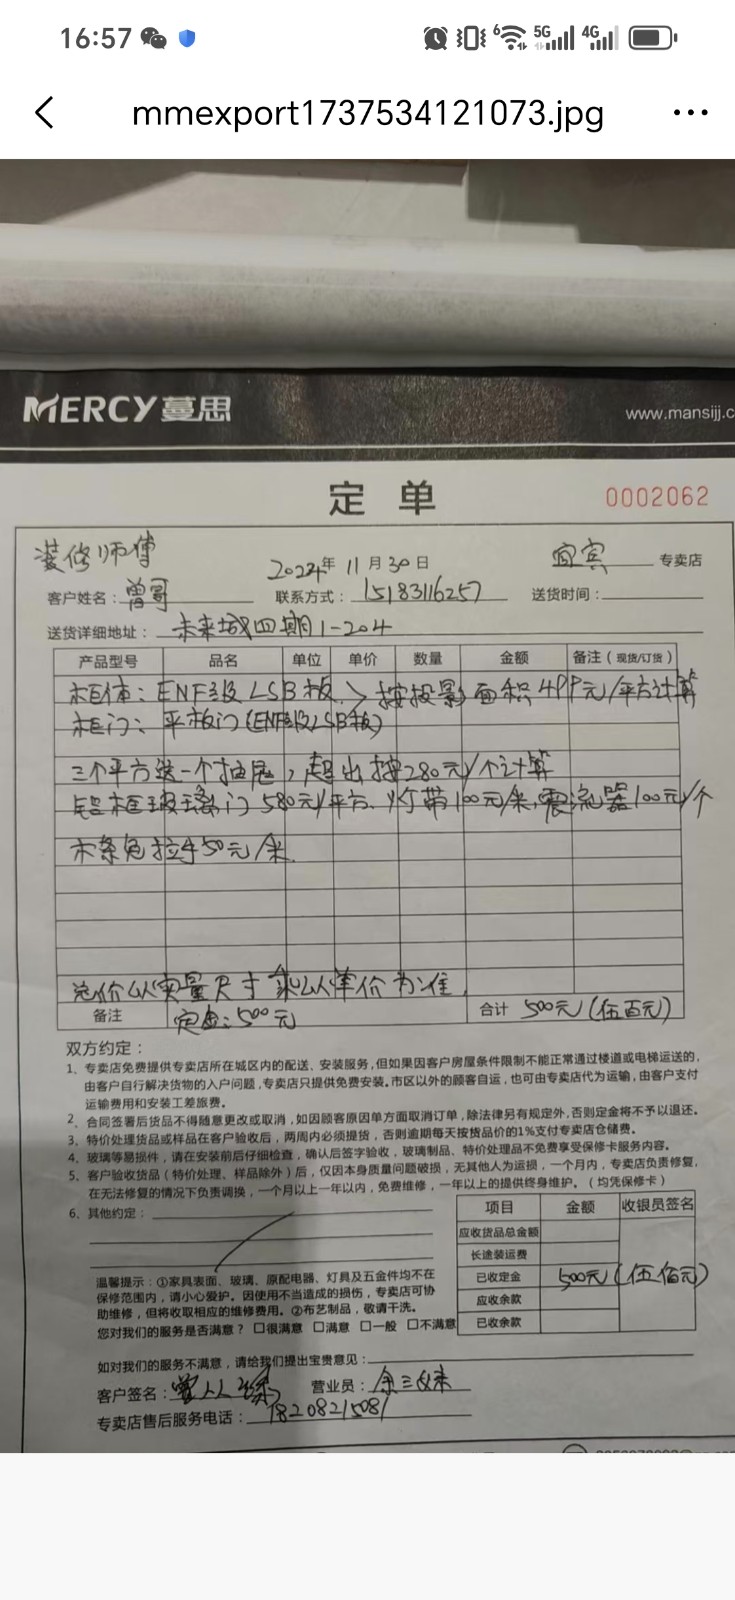 16:57
6 5G 4G
mmexport1737534121073.jpg
MERCY 蔓思
www.mansijj.c
定 单
0002062
装修师傅
2024年 11 月 30 日
宜宾 专卖店
客户姓名：曾哥 联系方式：15183116257 送货时间：
送货详细地址：未来城四期1-204
产品型号 品名 单位 单价 数量 金额 备注（现货/订货）
柜体：ENF级LSB板 > 按投影面积499元/平方计算
柜门：平板门(ENF级LSB板)
三个平方送一个抽屉，超出按280元/个计算
铝框玻璃门580元/平方、灯带100元/米，震流器100元/个
木条免拉手50元/米
总价以实量尺寸乘以单价为准
备注 定金：500元 合计 500元(伍百元)
双方约定：
1、专卖店免费提供专卖店所在城区内的配送、安装服务，但如果因客户房屋条件限制不能正常通过楼道或电梯运送的，
由客户自行解决货物的入户问题，专卖店只提供免费安装。市区以外的顾客自运，也可由专卖店代为运输，由客户支付
运输费用和安装工差旅费。
2、合同签署后货品不得随意更改或取消，如因顾客原因单方面取消订单，除法律另有规定外，否则定金将不予以退还。
3、特价处理货品或样品在客户验收后，两周内必须提货，否则逾期每天按货品价的1%支付专卖店仓储费。
4、玻璃等易损件，请在安装前后仔细检查，确认后签字验收，玻璃制品、特价处理品不免费享受保修卡服务内容。
5、客户验收货品（特价处理、样品除外）后，仅因本身质量问题破损，无其他人为运损，一个月内，专卖店负责修复，
在无法修复的情况下负责调换，一个月以上一年以内，免费维修，一年以上的提供终身维护。（均凭保修卡）
6、其他约定：
项目 金额 收银员签名
应收货品总金额
长途装运费
已收定金 500元(伍佰元)
应收余款
已收余款
温馨提示：①家具表面、玻璃、原配电器、灯具及五金件均不在
保修范围内，请小心爱护。因使用不当造成的损伤，专卖店可协
助维修，但将收取相应的维修费用。②布艺制品，敬请干洗。
您对我们的服务是否满意？ □很满意 □满意 □一般 □不满意
如对我们的服务不满意，请给我们提出宝贵意见：
客户签名： 营业员：余三妹
专卖店售后服务电话：18208215081